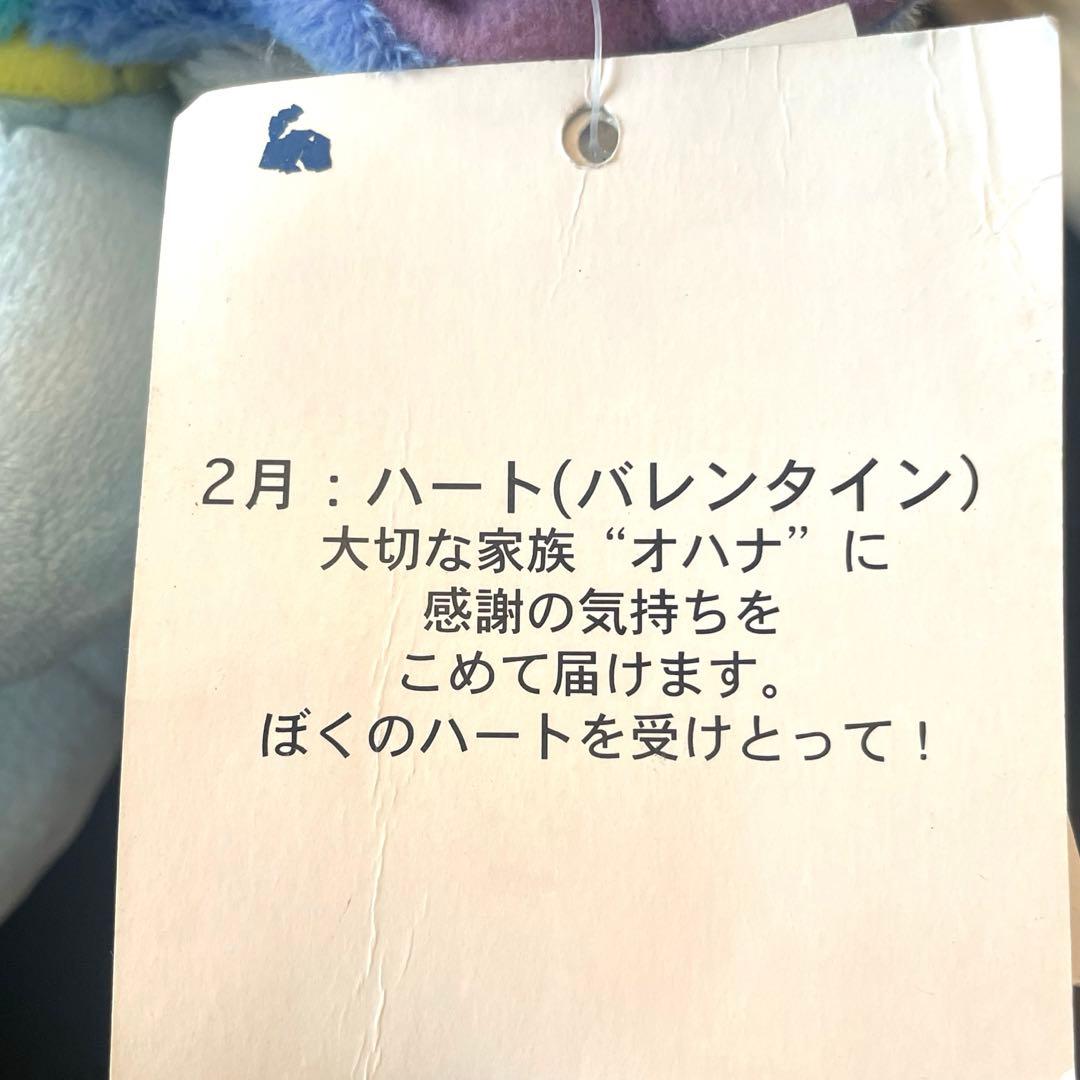 2月：ハート(バレンタイン)
大切な家族“オハナ”に
感謝の気持ちを
こめて届けます。
ぼくのハートを受けとって！